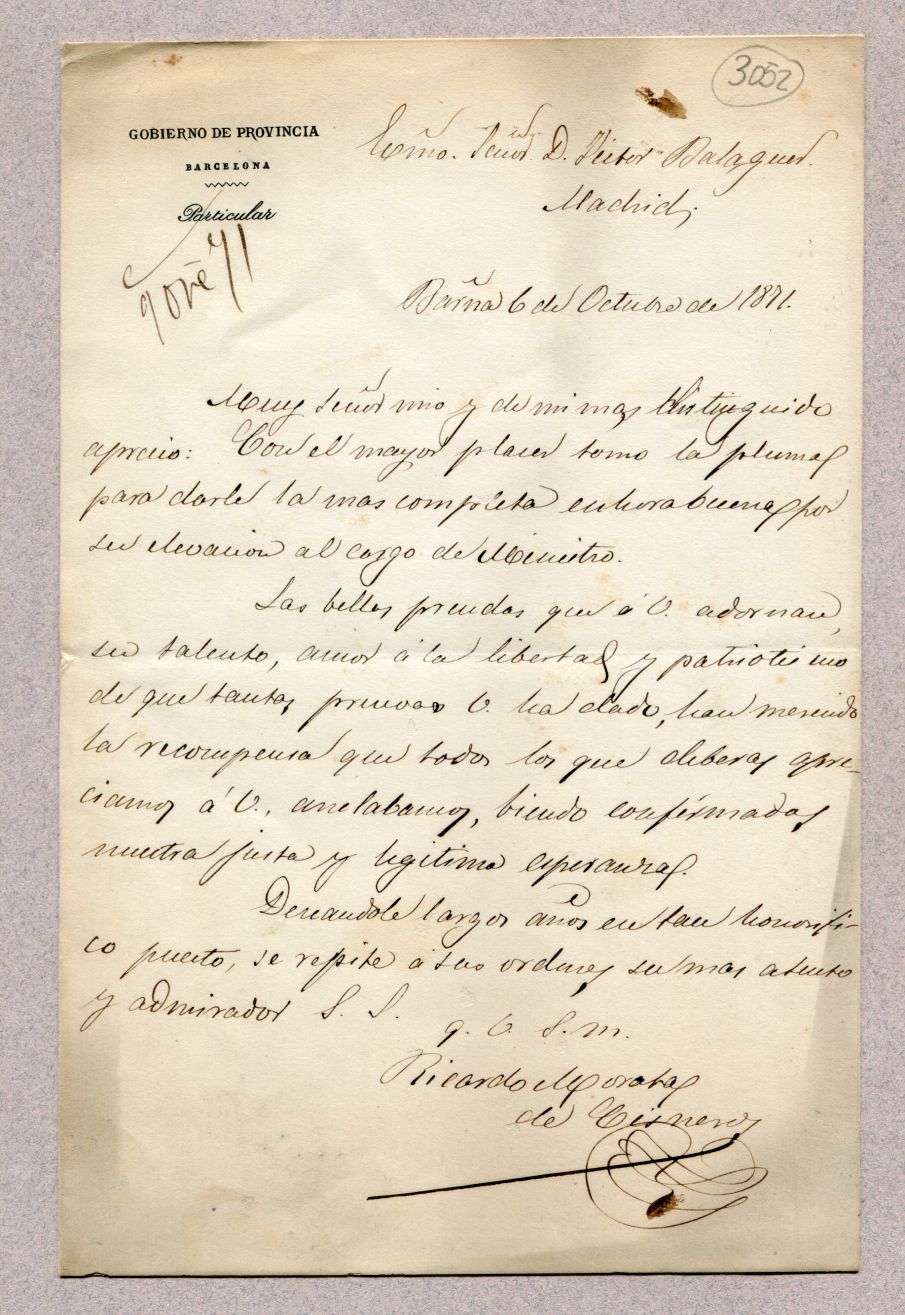 3052
GOBIERNO DE PROVINCIA
BARCELONA
Particular
Exmo. Señor D. Victor Balaguer.
Madrid.
Barña 6 de Octubre de 1871.
Muy Señor mio y de mi mas distinguido
aprecio: Con el mayor placer tomo la pluma
para darle la mas completa enhorabuena por
su elevacion al cargo de Ministro.
Las bellas prendas que á V. adornan,
su talento, amor á la libertad y patriotismo
de que tantas pruevas V. ha dado, han merecido
la recompensa que todos los que deberas apre-
ciamos á V., anelabamos, biendo confirmadas
nuestra justa y legitima esperanza.
Deseandole largos años en tan honorifi-
co puesto, se repite á sus ordenes su mas atento
y admirador S. S.
q. V. S. M.
Ricardo Moratas
de Cisneros